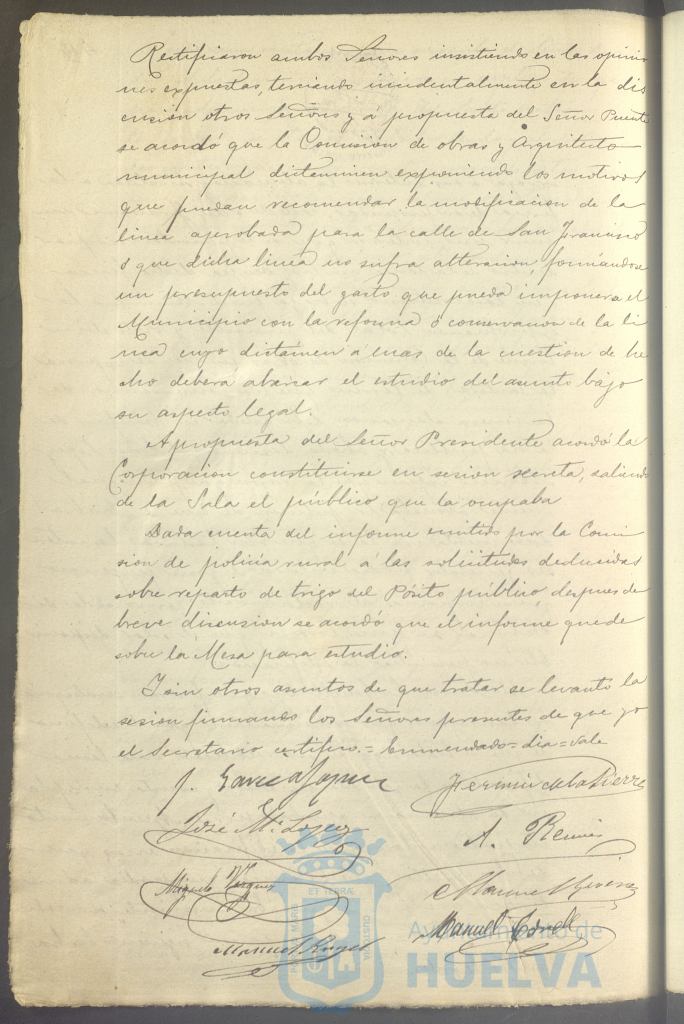 Rectificaron ambos Señores insistiendo en las opinio
nes expuestas, terciando incidentalmente en la dis
cusión otros Señores y á propuesta del Señor Puente
se acordó que la Comisión de obras y Arquitecto
municipal dictaminen exponiendo los motivos
que puedan recomendar la modificacion de la
linea aprobada para la calle de San Francisco
ó que dicha linea no sufra alteracion, formándose
un presupuesto del gasto que pueda imponerse el
Municipio con la reforma ó conservacion de la li
nea cuyo dictámen á mas de la cuestion de he
cho deberá abarcar el estudio del asunto bajo
su aspecto legal.
A propuesta del Señor Presidente acordó la
Corporacion constituirse en sesion secreta, saliendo
de la Sala el público que la ocupaba
Dada cuenta del informe emitido por la Comi
sion de policía rural á las solicitudes deducidas
sobre reparto de trigo del Pósito público, despues de
breve discusion se acordó que el informe quede
sobre la Mesa para estudio.
Y sin otros asuntos de que tratar se levantó la
sesion firmando los Señores presentes de que yo
el Secretario certifico. = Enmendado = dia = vale
J. Garcia Lopez
Fermin de la Sierra
José Mª Lopez
A.
Miguel Vazquez
Manuel
Manuel
Manuel
ET TERRAE
PORTUS MARIS
CUSTODIA
Ayuntamiento de
HUELVA